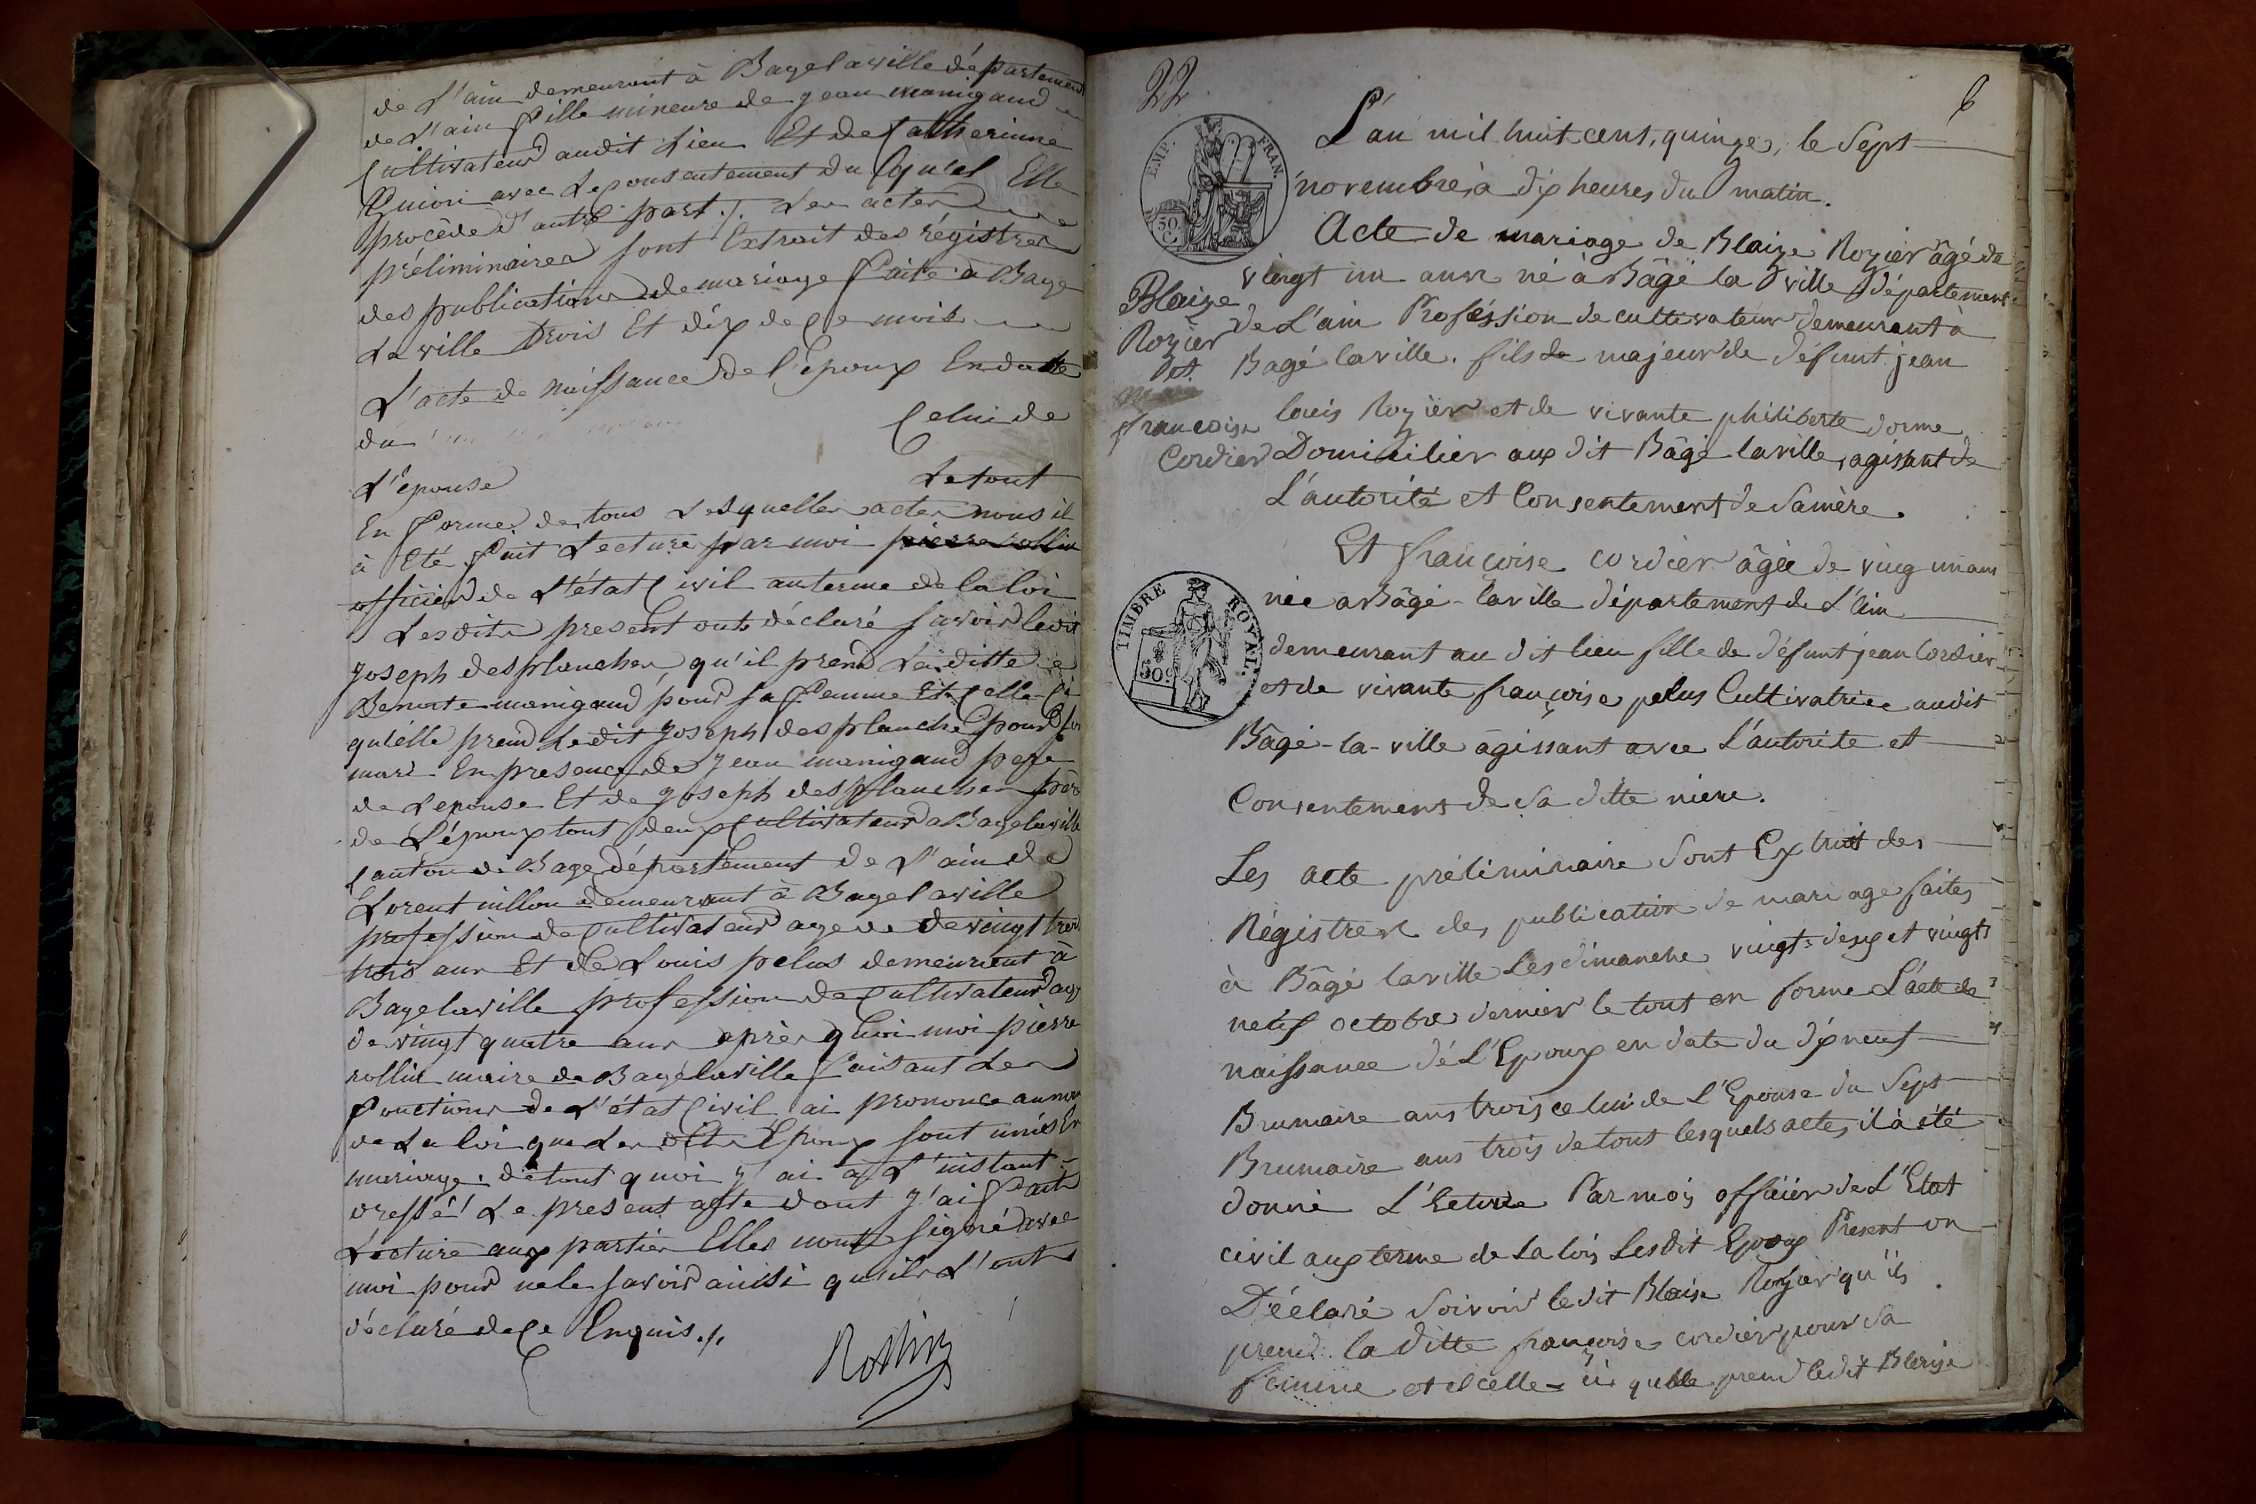 de L'ain demeurant à Bagelaville département
de L'ain fille mineure de jean manigaud
Cultivateur audit Lieu Et de Catherinne
Guion avec Le Consentement du Quel Elle
procède d'autre part ./. Les actes
préliminaires sont Extrait des régistres
des publications de mariage faite à Bage
La ville trois Et dix de Ce mois
L'acte de naissance de l'époux En date
du Celui de
L'épouse Le tout
En forme de tous Lesquelles actes nous il
à Eté fait Lecture par moi pierre rollin
officier de L'état Civil au terme de la loi
Lesdits present onts déclaré savoir ledit
joseph desplanches qu'il prend La ditte
Benoite manigaud pour sa femme Et Celle Ci
qu'elle prend Ledit joseph desplanche pour son
mari En presence de jean manigaud pere
de Lepouse Et de joseph desplanches père
de L'époux tout deux Cultivateur a Bagelaville
Canton de Bage département de L'ain de
Lorent nillon demeurant à Bagelaville
profession de Cultivateur age de de vingt trois
trois ans Et de Louis pelus demeurent à
Bagelaville profession de Cultivateur age
de vingt quatre ans après quoi moi pierre
rollin maire de Bagélaville faisant Les
fonctions de L'état Civil ai prononce au nom
de La loi que Les dits Epoux sont unis En
mariage. de tout quoi j'ai à L'instant
dressé Le present acte dont j'ai fait
Lecture aux parties Elles n'ont signé avec
moi pour ne le savoir ainsi qu'ils L'ont
déclaré de Ce Enquis ./.
Rollin
22
6
EMP. FRAN.
50 C.
L'an mil huit cent, quinze, le Sept
novembre à dix heures du matin.
Acte de mariage de Blaize Rozier âgé de
vingt un ans né à Bâgé la ville département
de L'ain Profession de cultivateur demeurant à
Bagé laville. fils de majeur de défunt jean
louis Rozier et de vivante philiberte dorme
Domicilier aux dit Bâgé laville, agissant de
L'autorité et Consentement de Sa mère.
Blaize
Rozier
et
francoise
Cordier
TIMBRE ROYAL.
50 c.
Et françoise cordier âgée de ving un ans
née a Bâgé-laville département de L'ain
demeurant au dit lieu fille de défunt jean Cordier
et de vivante françoise pelus Cultivatrice audit
Bâgé-la-ville âgissant avec L'autorite et
Consentement de Sa ditte mere.
Les acte préliminaire Sont Extrait des
Régistres des publication de mariage faites
à Bâgé laville Les dimanche vingt-deux et vingt
neuf octobre dernier le tout en forme L'acte de
naissance dé L'Epoux en date du dix neuf
Brumaire ans trois celui de L'Epouse du Sept
Brumaire ans trois de tout lesquels actes, il à été
donné L'Ecture Par moi officier de L'Etat
civil aux terme de La loi, Lesdit Epoux Present on
Déclaré Soivoir le dit Blaise Rozier qu'il
prend la ditte françoise cordier pour Sa
femme et icelle-ci qu'elle prend ledit Blaise